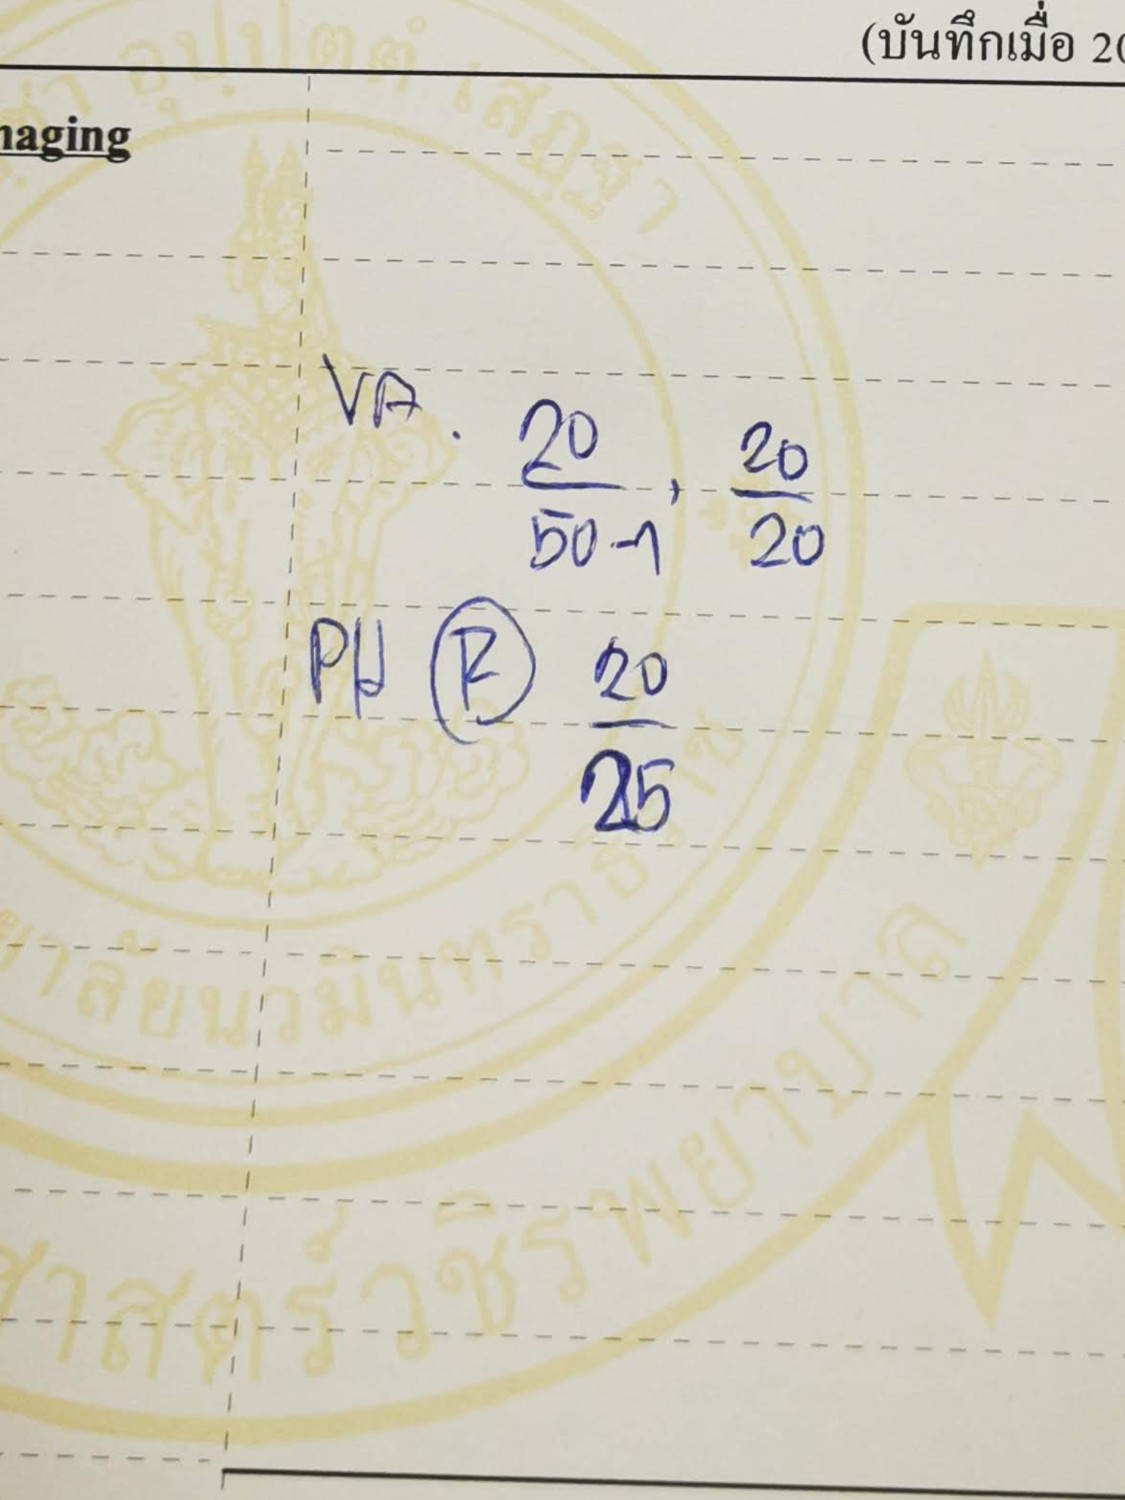 (บันทึกเมื่อ 20
maging
VA. 20/50-1, 20/20
PH Ⓡ 20/25
อุปฺปตตํ เสฏฺฐา
ยาลัยนวมินทราธิราช
ศาสตร์วชิรพยาบาล